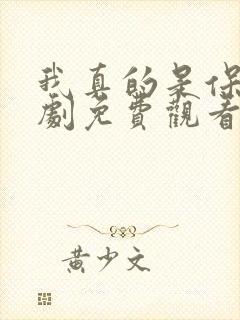 我真的是保
劇免費觀看
黃少文